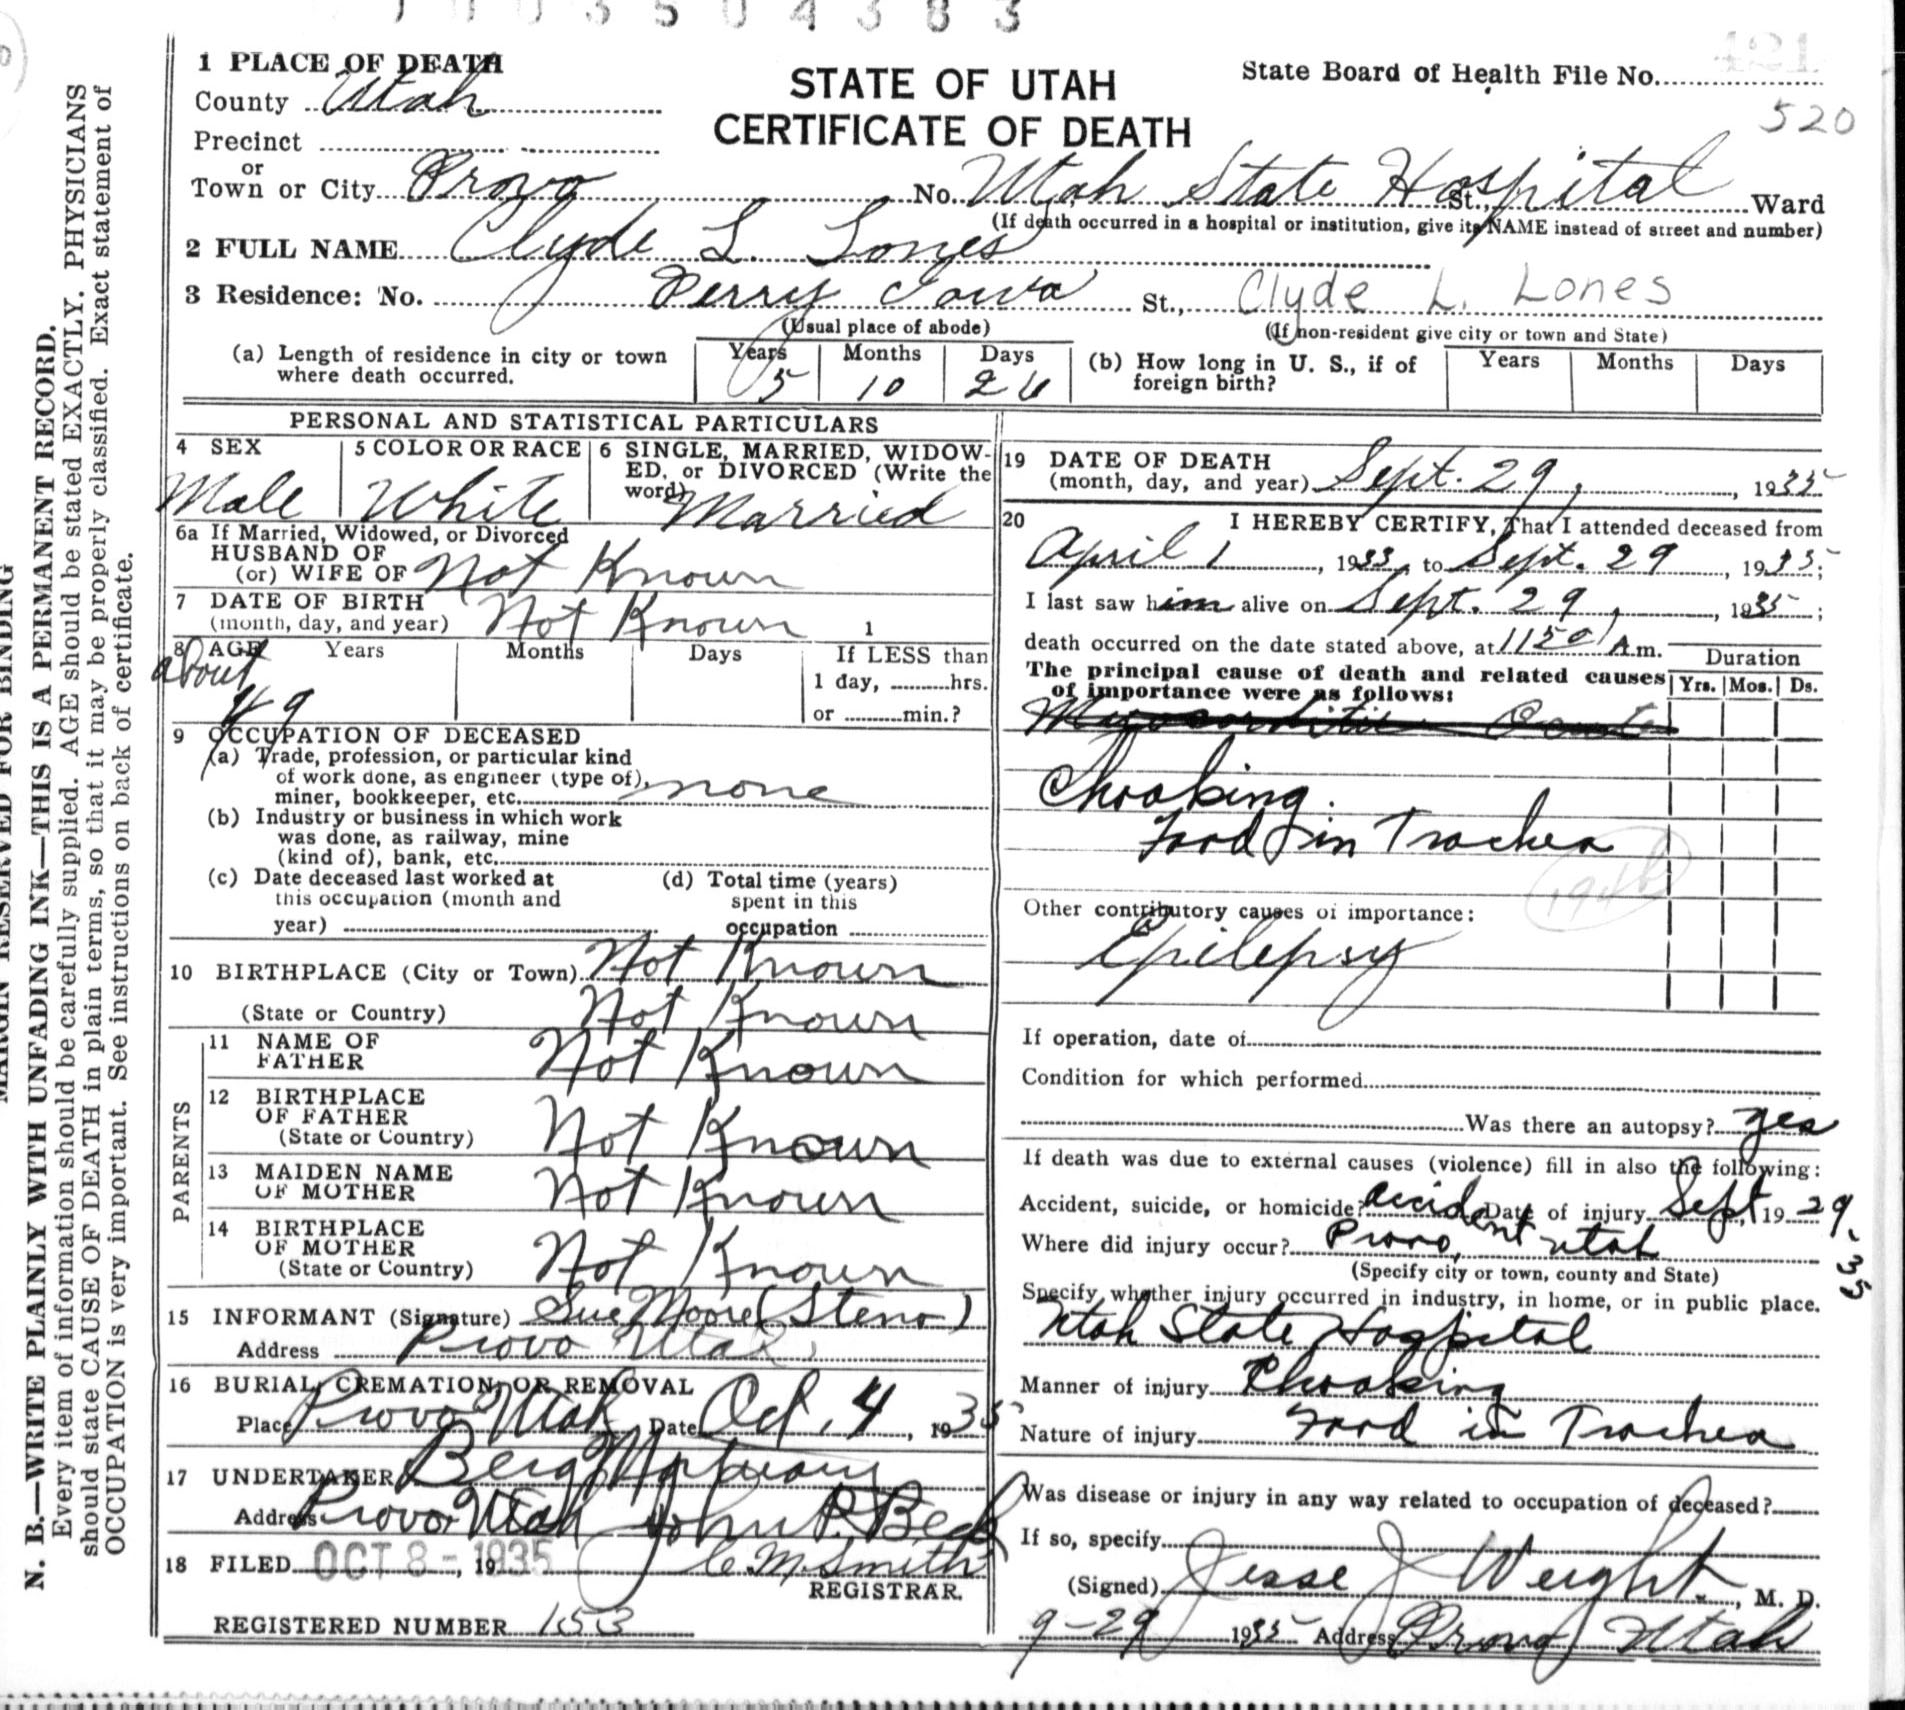 1003504383
1 PLACE OF DEATH
County Utah
Precinct
or
Town or City Provo No. Utah State Hospital St., Ward
(If death occurred in a hospital or institution, give its NAME instead of street and number)
STATE OF UTAH
CERTIFICATE OF DEATH
State Board of Health File No. 421
520
2 FULL NAME Clyde L. Lones
3 Residence: No. Perry Iowa St., Clyde L. Lones
(Usual place of abode) (If non-resident give city or town and State)
(a) Length of residence in city or town where death occurred.
Years Months Days
5 10 26
(b) How long in U. S., if of foreign birth?
Years Months Days
PERSONAL AND STATISTICAL PARTICULARS
4 SEX
Male
5 COLOR OR RACE
White
6 SINGLE, MARRIED, WIDOW-
ED, or DIVORCED (Write the
word) Married
6a If Married, Widowed, or Divorced
HUSBAND OF
(or) WIFE OF Not Known
7 DATE OF BIRTH
(month, day, and year) Not Known
8 AGE Years Months Days If LESS than
about 1 day, hrs.
49 or min.?
9 OCCUPATION OF DECEASED
(a) Trade, profession, or particular kind
of work done, as engineer (type of),
miner, bookkeeper, etc. none
(b) Industry or business in which work
was done, as railway, mine
(kind of), bank, etc.
(c) Date deceased last worked at
this occupation (month and
year)
(d) Total time (years)
spent in this
occupation
10 BIRTHPLACE (City or Town) Not Known
(State or Country) Not Known
PARENTS
11 NAME OF
FATHER Not Known
12 BIRTHPLACE
OF FATHER
(State or Country) Not Known
13 MAIDEN NAME
OF MOTHER Not Known
14 BIRTHPLACE
OF MOTHER
(State or Country) Not Known
15 INFORMANT (Signature) Sue Moore (Steno)
Address Provo Utah
16 BURIAL, CREMATION, OR REMOVAL
Place Provo Utah Date Oct. 4, 1935
17 UNDERTAKER Berg Mortuary
Address Provo Utah John P. Beck
18 FILED OCT 8 - 1935 C. M. Smith
REGISTRAR.
REGISTERED NUMBER 153
19 DATE OF DEATH
(month, day, and year) Sept. 29, 1935
20 I HEREBY CERTIFY, That I attended deceased from
April 1, 1933, to Sept. 29, 1935;
I last saw him alive on Sept. 29, 1935;
death occurred on the date stated above, at 1150 A.m.
The principal cause of death and related causes
of importance were as follows:
Duration
Yrs. Mos. Ds.
Chooking.
Food in Trachea
194b
Other contributory causes of importance:
Epilepsy
If operation, date of
Condition for which performed
Was there an autopsy? yes
If death was due to external causes (violence) fill in also the following:
Accident, suicide, or homicide? accident Date of injury Sept 19 29, 35
Where did injury occur? Provo, Utah
(Specify city or town, county and State)
Specify whether injury occurred in industry, in home, or in public place.
Utah State Hospital
Manner of injury Chooking
Nature of injury Food in Trachea
Was disease or injury in any way related to occupation of deceased?
If so, specify
(Signed) Jesse J Weight, M. D.
9-29 1935 Address Provo Utah
MARGIN RESERVED FOR BINDING
N. B.—WRITE PLAINLY WITH UNFADING INK—THIS IS A PERMANENT RECORD.
Every item of information should be carefully supplied. AGE should be stated EXACTLY. PHYSICIANS
should state CAUSE OF DEATH in plain terms, so that it may be properly classified. Exact statement of
OCCUPATION is very important. See instructions on back of certificate.